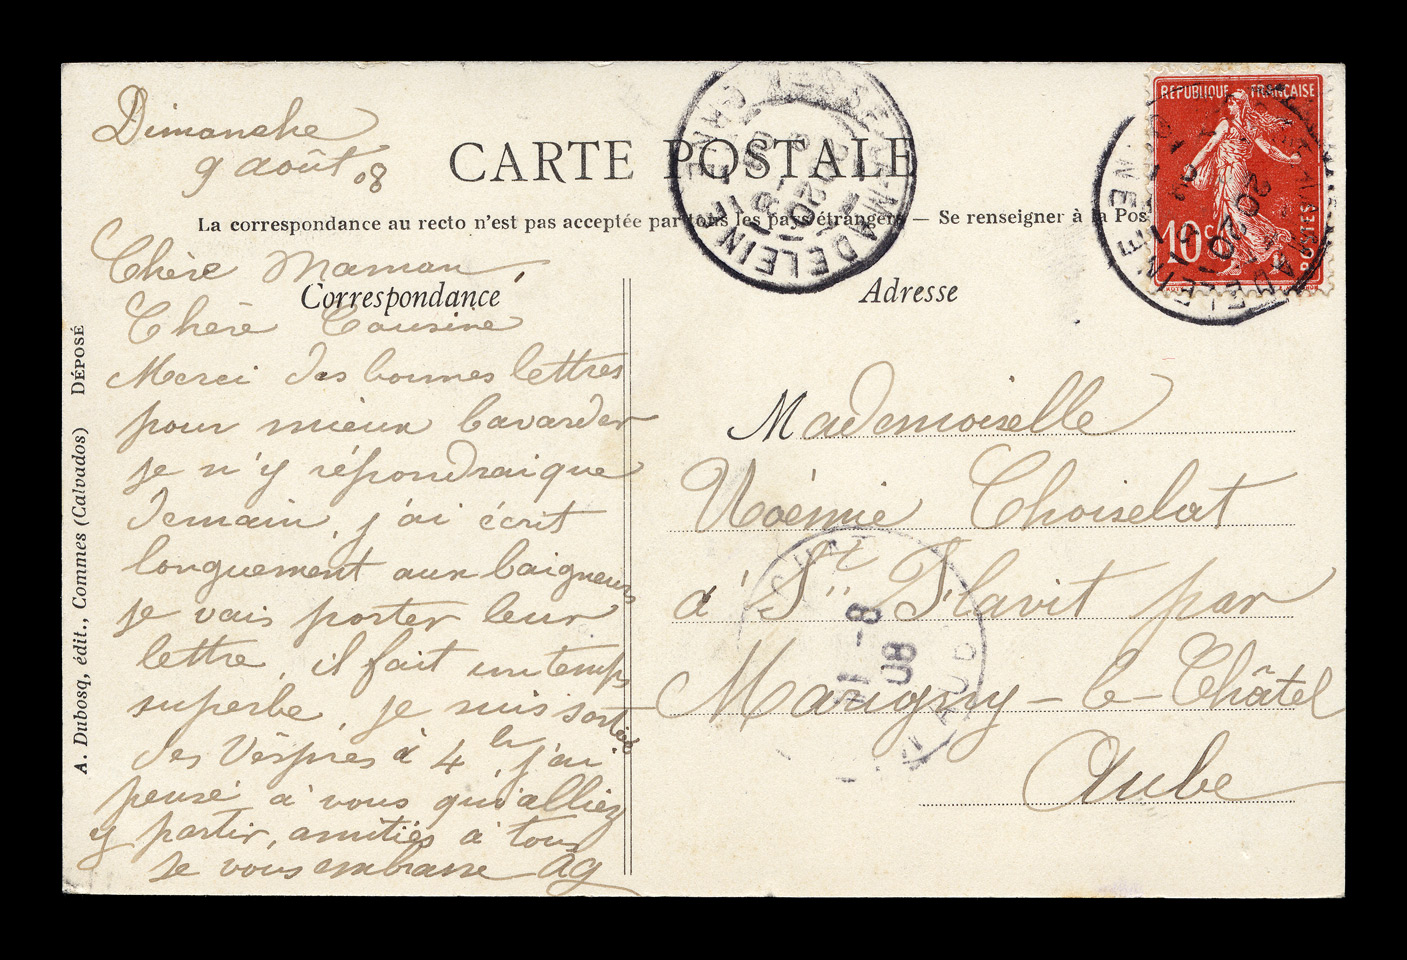 Dimanche
9 août 08
CARTE POSTALE
La correspondance au recto n'est pas acceptée par tous les pays étrangers — Se renseigner à la Pos
Correspondance
Adresse
Chère Maman,
Chère Cousine
Merci des bonnes lettres
pour mieux bavarder
je n'y répondrai que
demain, j'ai écrit
longuement aux baigneurs
je vais porter leur
lettre, il fait un temps
superbe, je suis sortie
des Vêpres à 4 h, j'ai
pensé à vous qu'alliez
y partir, amitiés à tous
Je vous embrasse AG
Mademoiselle
Noémie Choiselat
à St Flavit par
Marigny-le-Châtel
Aube
A. Dubosq, édit., Commes (Calvados) DÉPOSÉ
REPUBLIQUE FRANÇAISE
10 c
POSTES
MADELEINE
SEINE
11 -8
08